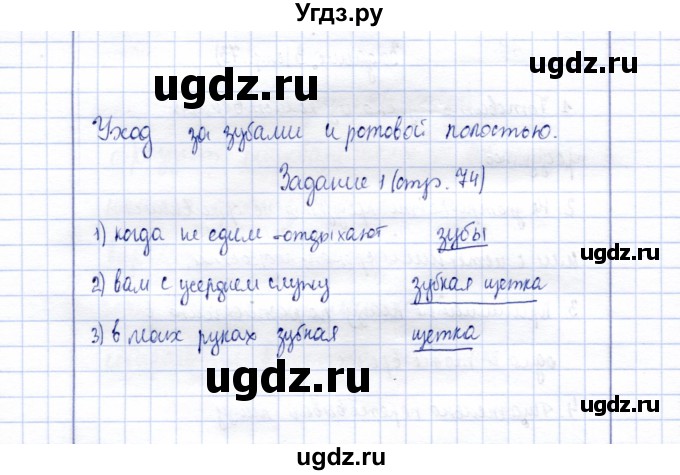 Угдз.ру
ugdz.ru
Уход за зубами и ротовой полостью.
Задание 1 (стр. 74)
1) когда не едим - отдыхают зубы
2) вам с усердием служу зубная щетка
3) в моих руках зубная щетка
ugdz.ru
ugdz.ru
ugdz.ru
ugdz.ru